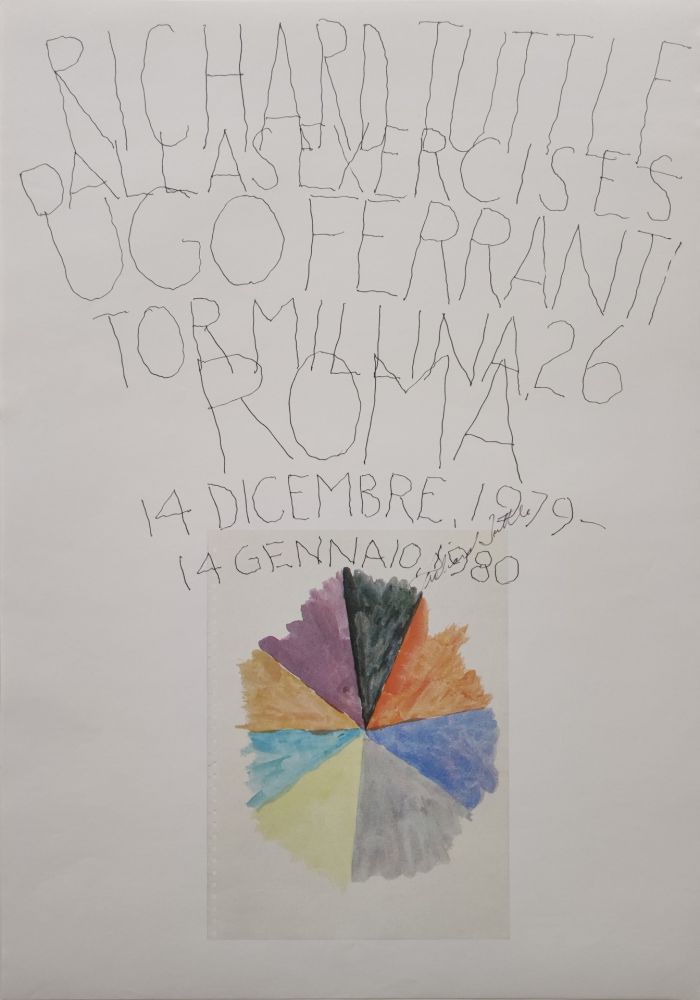 RICHARD TUTTLE
DALLAS EXERCISES
UGO FERRANTI
TOR MILLINA, 26
ROMA
14 DICEMBRE, 1979-
14 GENNAIO, 1980
Richard Tuttle